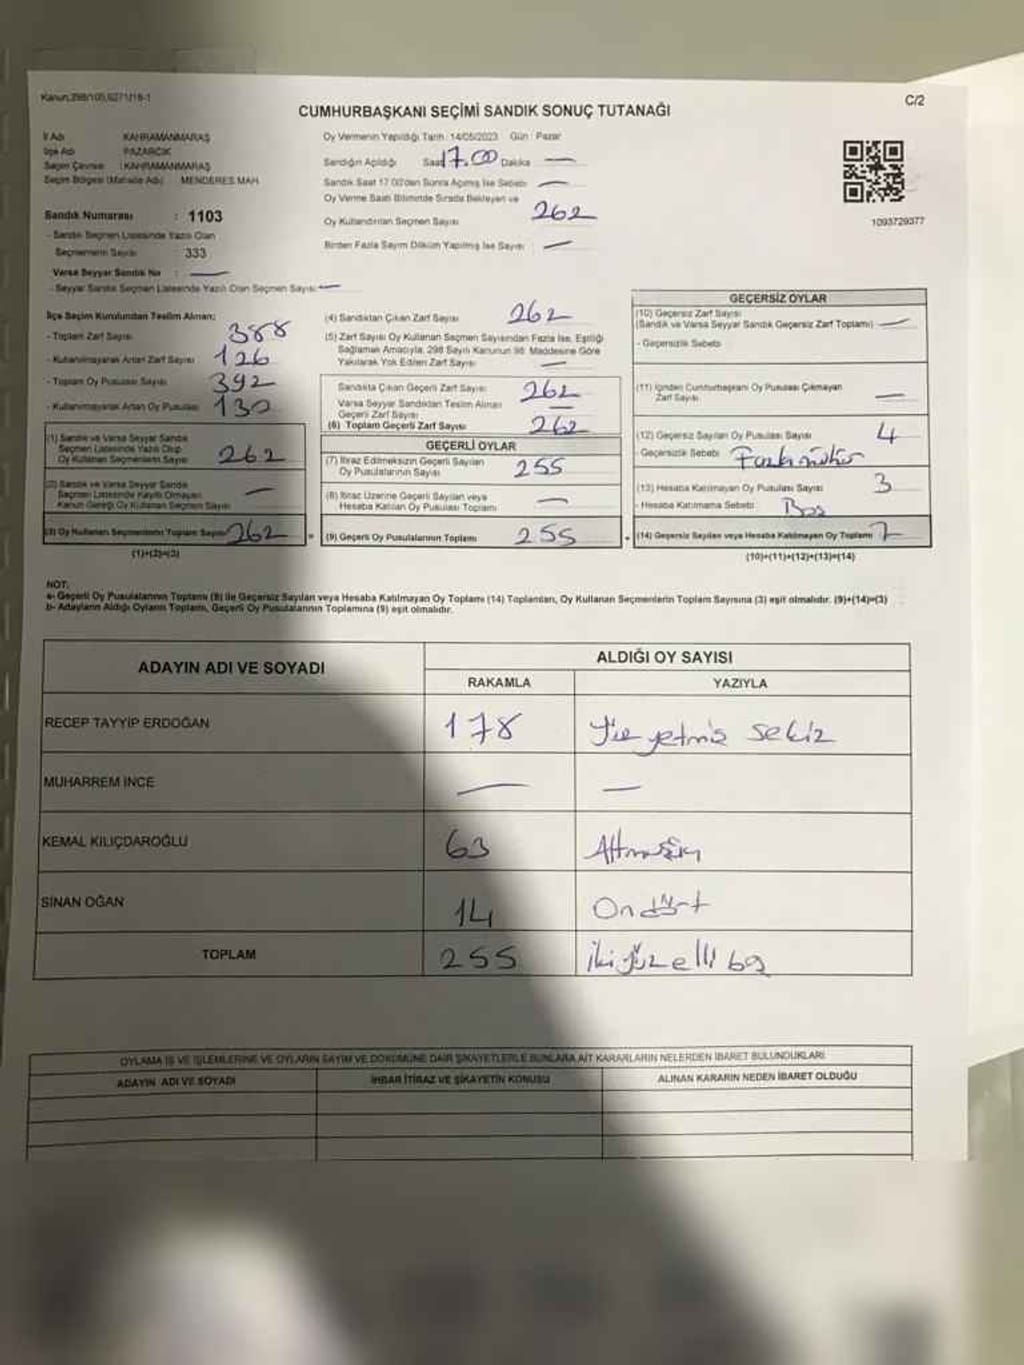 Kanun:298/105,6271/18-1
C/2
CUMHURBAŞKANI SEÇİMİ SANDIK SONUÇ TUTANAĞI
İl Adı KAHRAMANMARAŞ
İlçe Adı PAZARCIK
Seçim Çevresi : KAHRAMANMARAŞ
Seçim Bölgesi (Mahalle Adı) : MENDERES MAH
Sandık Numarası : 1103
- Sandık Seçmen Listesinde Yazılı Olan
Seçmenlerin Sayısı 333
Varsa Seyyar Sandık No : —
- Seyyar Sandık Seçmen Listesinde Yazılı Olan Seçmen Sayısı: —
Oy Vermenin Yapıldığı Tarih : 14/05/2023 Gün : Pazar
Sandığın Açıldığı Saat 17.00 Dakika —
Sandık Saat 17.00'den Sonra Açılmış İse Sebebi —
Oy Verme Saati Bitiminde Sırada Bekleyen ve
Oy Kullandırılan Seçmen Sayısı 262
Birden Fazla Sayım Döküm Yapılmış İse Sayısı —
1093729377
İlçe Seçim Kurulundan Teslim Alınan;
- Toplam Zarf Sayısı 388
- Kullanılmayarak Artan Zarf Sayısı 126
- Toplam Oy Pusulası Sayısı 392
- Kullanılmayarak Artan Oy Pusulası 130
(1) Sandık ve Varsa Seyyar Sandık
Seçmen Listesinde Yazılı Olup
Oy Kullanan Seçmenlerin Sayısı 262
(2) Sandık ve Varsa Seyyar Sandık
Seçmen Listesinde Kayıtlı Olmayan
Kanun Gereği Oy Kullanan Seçmen Sayısı —
(3) Oy Kullanan Seçmenlerin Toplam Sayısı 262
(1)+(2)=(3)
(4) Sandıktan Çıkan Zarf Sayısı 262
(5) Zarf Sayısı Oy Kullanan Seçmen Sayısından Fazla İse, Eşitliği
Sağlamak Amacıyla, 298 Sayılı Kanunun 98. Maddesine Göre
Yakılarak Yok Edilen Zarf Sayısı —
Sandıkta Çıkan Geçerli Zarf Sayısı 262
Varsa Seyyar Sandıktan Teslim Alınan
Geçerli Zarf Sayısı —
(6) Toplam Geçerli Zarf Sayısı 262
GEÇERLİ OYLAR
(7) İtiraz Edilmeksizin Geçerli Sayılan
Oy Pusulalarının Sayısı 255
(8) İtiraz Üzerine Geçerli Sayılan veya
Hesaba Katılan Oy Pusulası Toplamı —
= (9) Geçerli Oy Pusulalarının Toplamı 255
GEÇERSİZ OYLAR
(10) Geçersiz Zarf Sayısı
(Sandık ve Varsa Seyyar Sandık Geçersiz Zarf Toplamı) —
- Geçersizlik Sebebi
(11) İçinden Cumhurbaşkanı Oy Pusulası Çıkmayan
Zarf Sayısı —
(12) Geçersiz Sayılan Oy Pusulası Sayısı 4
- Geçersizlik Sebebi Fazla mühür
(13) Hesaba Katılmayan Oy Pusulası Sayısı 3
- Hesaba Katılmama Sebebi Boş
+ (14) Geçersiz Sayılan veya Hesaba Katılmayan Oy Toplamı 7
(10)+(11)+(12)+(13)=(14)
NOT:
a- Geçerli Oy Pusulalarının Toplamı (9) ile Geçersiz Sayılan veya Hesaba Katılmayan Oy Toplamı (14) Toplamları, Oy Kullanan Seçmenlerin Toplam Sayısına (3) eşit olmalıdır. (9)+(14)=(3)
b- Adayların Aldığı Oyların Toplamı, Geçerli Oy Pusulalarının Toplamına (9) eşit olmalıdır.
ADAYIN ADI VE SOYADI ALDIĞI OY SAYISI
RAKAMLA YAZIYLA
RECEP TAYYİP ERDOĞAN 178 Yüz yetmiş sekiz
MUHARREM İNCE — —
KEMAL KILIÇDAROĞLU 63 Altmışüç
SİNAN OĞAN 14 Ondört
TOPLAM 255 ikiyüz elli beş
OYLAMA İŞ VE İŞLEMLERİNE VE OYLARIN SAYIM VE DÖKÜMÜNE DAİR ŞİKAYETLERLE BUNLARA AİT KARARLARIN NELERDEN İBARET BULUNDUKLARI
ADAYIN ADI VE SOYADI İHBAR İTİRAZ VE ŞİKAYETİN KONUSU ALINAN KARARIN NEDEN İBARET OLDUĞU